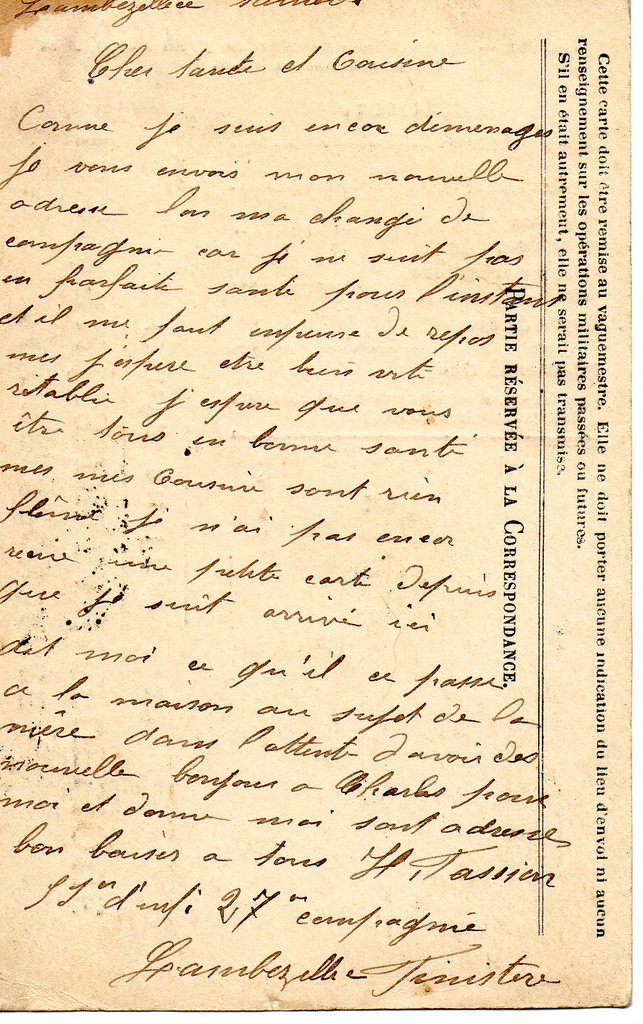 Lambezellec
Cher tante et Cousine
Comme je suis encor déménages
je vous envois mon nouvelle
adresse lon ma changé de
compagnie car je ne suit pas
en parfaite santé pour l'instant
et il me faut de repos
mes j'espere etre bien vite
rétablie j'espere que vous
être tous en bonne santé
mes mes Cousine sont rien
flême je n'ai pas encor
recue une petite carte depuis
que je suit arrivé ici
dit moi ce qu'il ce passe
a la maison au sujet de la
mère dans l'attente d'avoir des
nouvelle bonjour a Charles pour
moi et donne moi sont adresse
bon baiser a tous H. Tassion
d'infi 27e compagnie
Lambezellec Finistere
PARTIE RÉSERVÉE À LA CORRESPONDANCE.
Cette carte doit être remise au vaguemestre. Elle ne doit porter aucune indication du lieu d'envoi ni aucun
renseignement sur les opérations militaires passées ou futures.
S'il en était autrement, elle ne serait pas transmise.